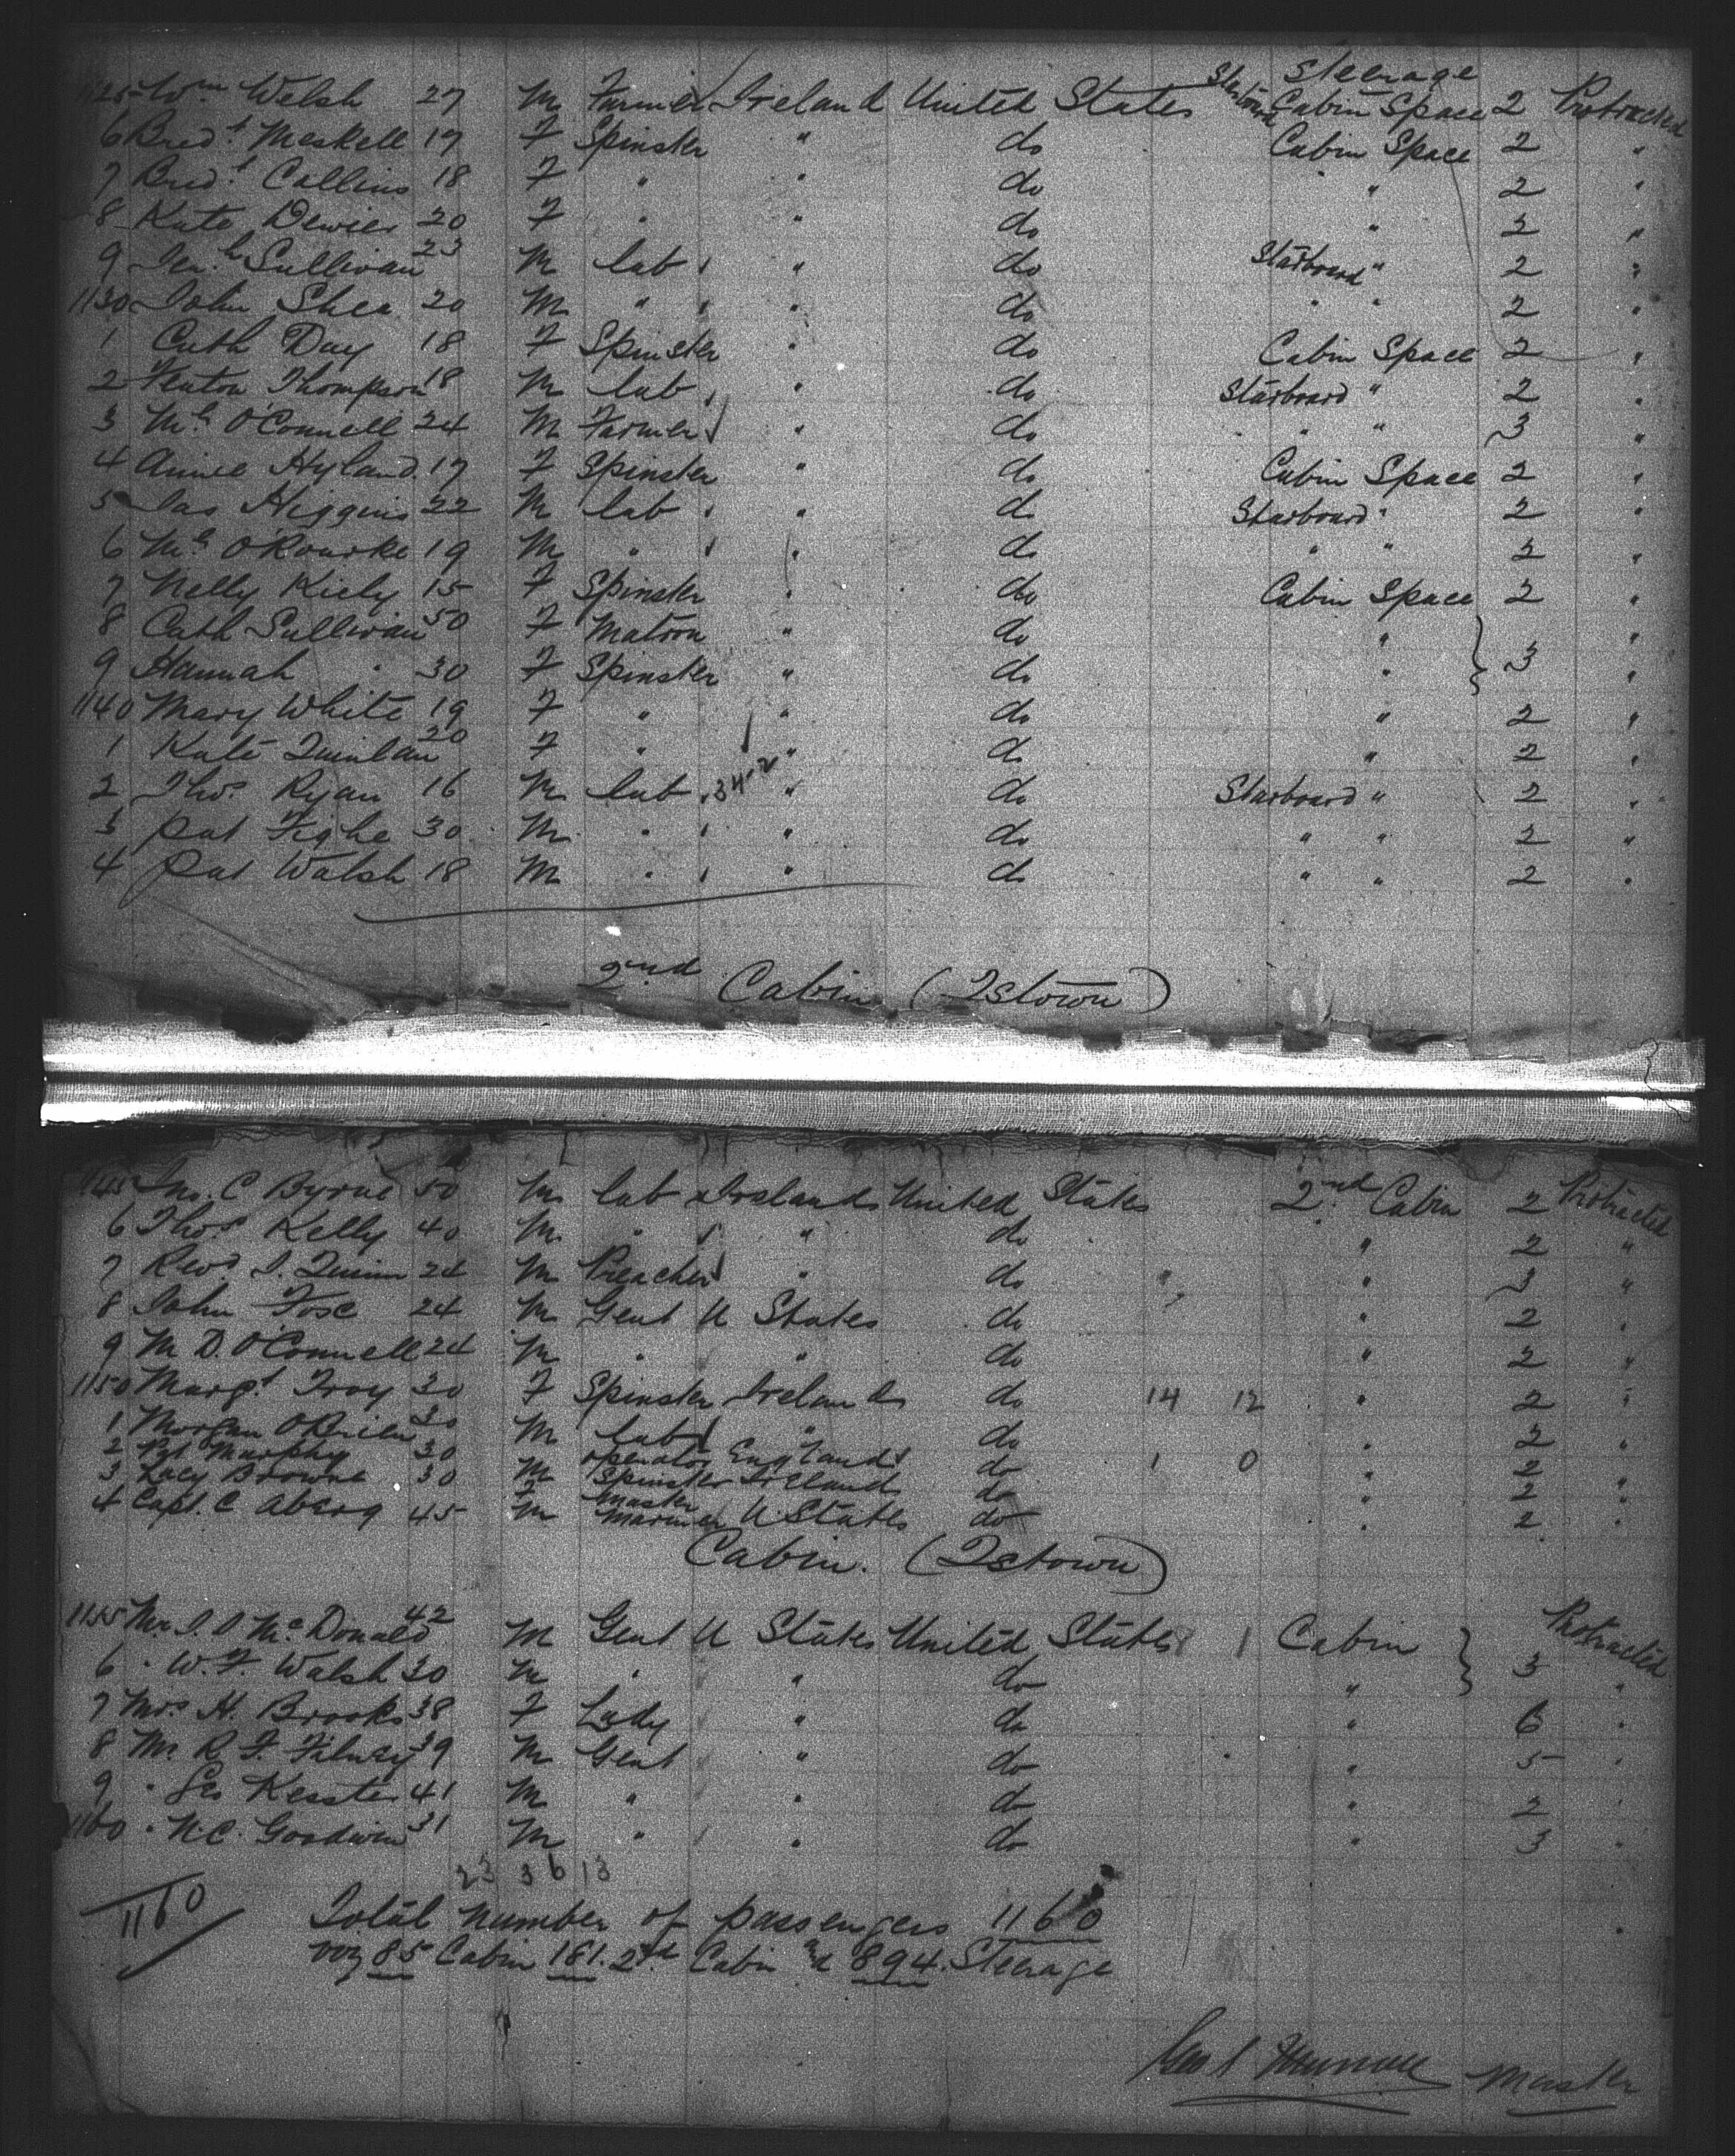 Steerage
1125 Wm Welsh 27 M Farmer Ireland United States Starboard Cabin Space 2 Protracted
6 Bridt Meskell 19 F Spinster " do Cabin Space 2 "
7 Bridt Collins 18 F " " do " " 2 "
8 Kate 20 F " " do " 2 "
9 Jerh Sullivan 23 M lab " do Starboard " 2 "
1130 John Shea 20 M " " do " " 2 "
1 Cath Day 18 F Spinster " do Cabin Space 2 "
2 Thompson 18 M lab " do Starboard " 2 "
3 Ml O'Connell 24 M Farmer " do " " 3 "
4 Annie Hyland 17 F Spinster " do Cabin Space 2 "
5 Jas Higgins 22 M lab " do Starboard " 2 "
6 Ml O'Rourke 19 M " " do " " 2 "
7 Nelly Kiely 15 F Spinster " do Cabin Space 2 "
8 Cath Sullivan 50 F Matron " do " "
9 Hannah " 30 F Spinster " do " 3 "
1140 Mary White 19 F " " do " 2 "
1 Kate Quinlan 20 F " " do " 2 "
2 Thos Ryan 16 M lab " do Starboard " 2 "
3 Pat Tighe 30 M " " do " " 2 "
4 Pat Walsh 18 M " " do " " 2 "
2nd Cabin (Qstown)
1145 Jno. C Byrne 50 M lab Ireland United States 2nd Cabin 2 Protracted
6 Thos Kelly 40 M " " do " 2 "
7 Revd J. Quinn 24 M Preacher " do " " 3 "
8 John Fose 24 M Gent U States do " 2 "
9 M D. O'Connell 24 M " " do " 2 "
1150 Margt Troy 30 F Spinster Ireland do 14 12 " 2 "
1 Morgan O'Brien 30 M lab " do " 2 "
2 Pat Murphy 30 M operator England do 1 0 " 2 "
3 Lacy Browne 30 F Spinster Ireland do " 2 "
4 Capt. C Aberg 45 M Master Mariner U States do " 2 "
Cabin. (Qstown)
1155 Mr. J. O McDonald 42 M Gent U States United States 1 Cabin Protracted
6 " W. F. Walsh 30 M " " do " 3 "
7 Mrs H. Brooks 38 F Lady " do " 6 "
8 Mr R. F. 39 M Gent " do " 5 "
9 " Geo Kessler 41 M " " do " 2 "
1160 " N.C. Goodwin 31 M " " do " 3 "
23 36 13
1160 Total number of passengers 1160
voz 85 Cabin 181. 2nd Cabin & 894. Steerage
Master